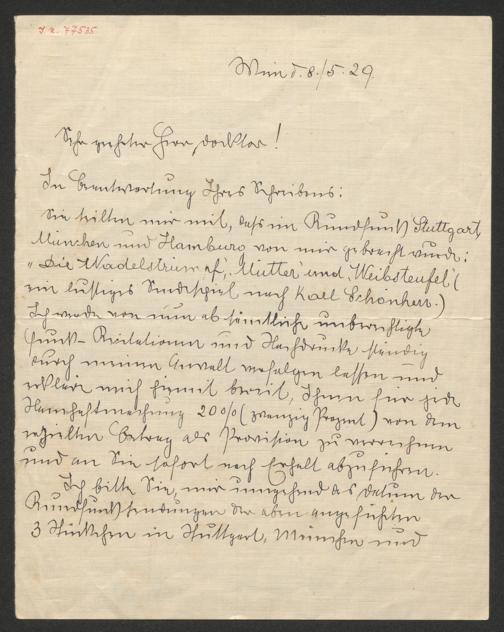 J. N. 77535
Wien d. 8./5. 29.
Sehr geehrter Herr Docktor!
In Beantwortung Ihres Schreibens:
Sie teilten mir mit, dass im Rundfunk Stuttgart,
München und Hamburg von mir gebracht wurde:
"Die Nadelstrumpf", "Mutter und Weibsteufel" (
ein lustiges Kinderspiel nach Karl Schönherr.)
Ich werde von nun ab sämtliche unberechtigte
Funk-Rezitationen und Nachdrucke ständig
durch meinen Anwalt verfolgen lassen und
erkläre mich hiemit bereit, Ihnen für jede
Namhaftmachung 20% (zwanzig Prozent) von dem
erzielten Betrag als Provision zu verrechnen
und an Sie sofort nach Erhalt abzuführen.
Ich bitte Sie, mir umgehend das Datum der
Rundfunksendungen der oben angeführten
3 Stückchen in Stuttgart, München und